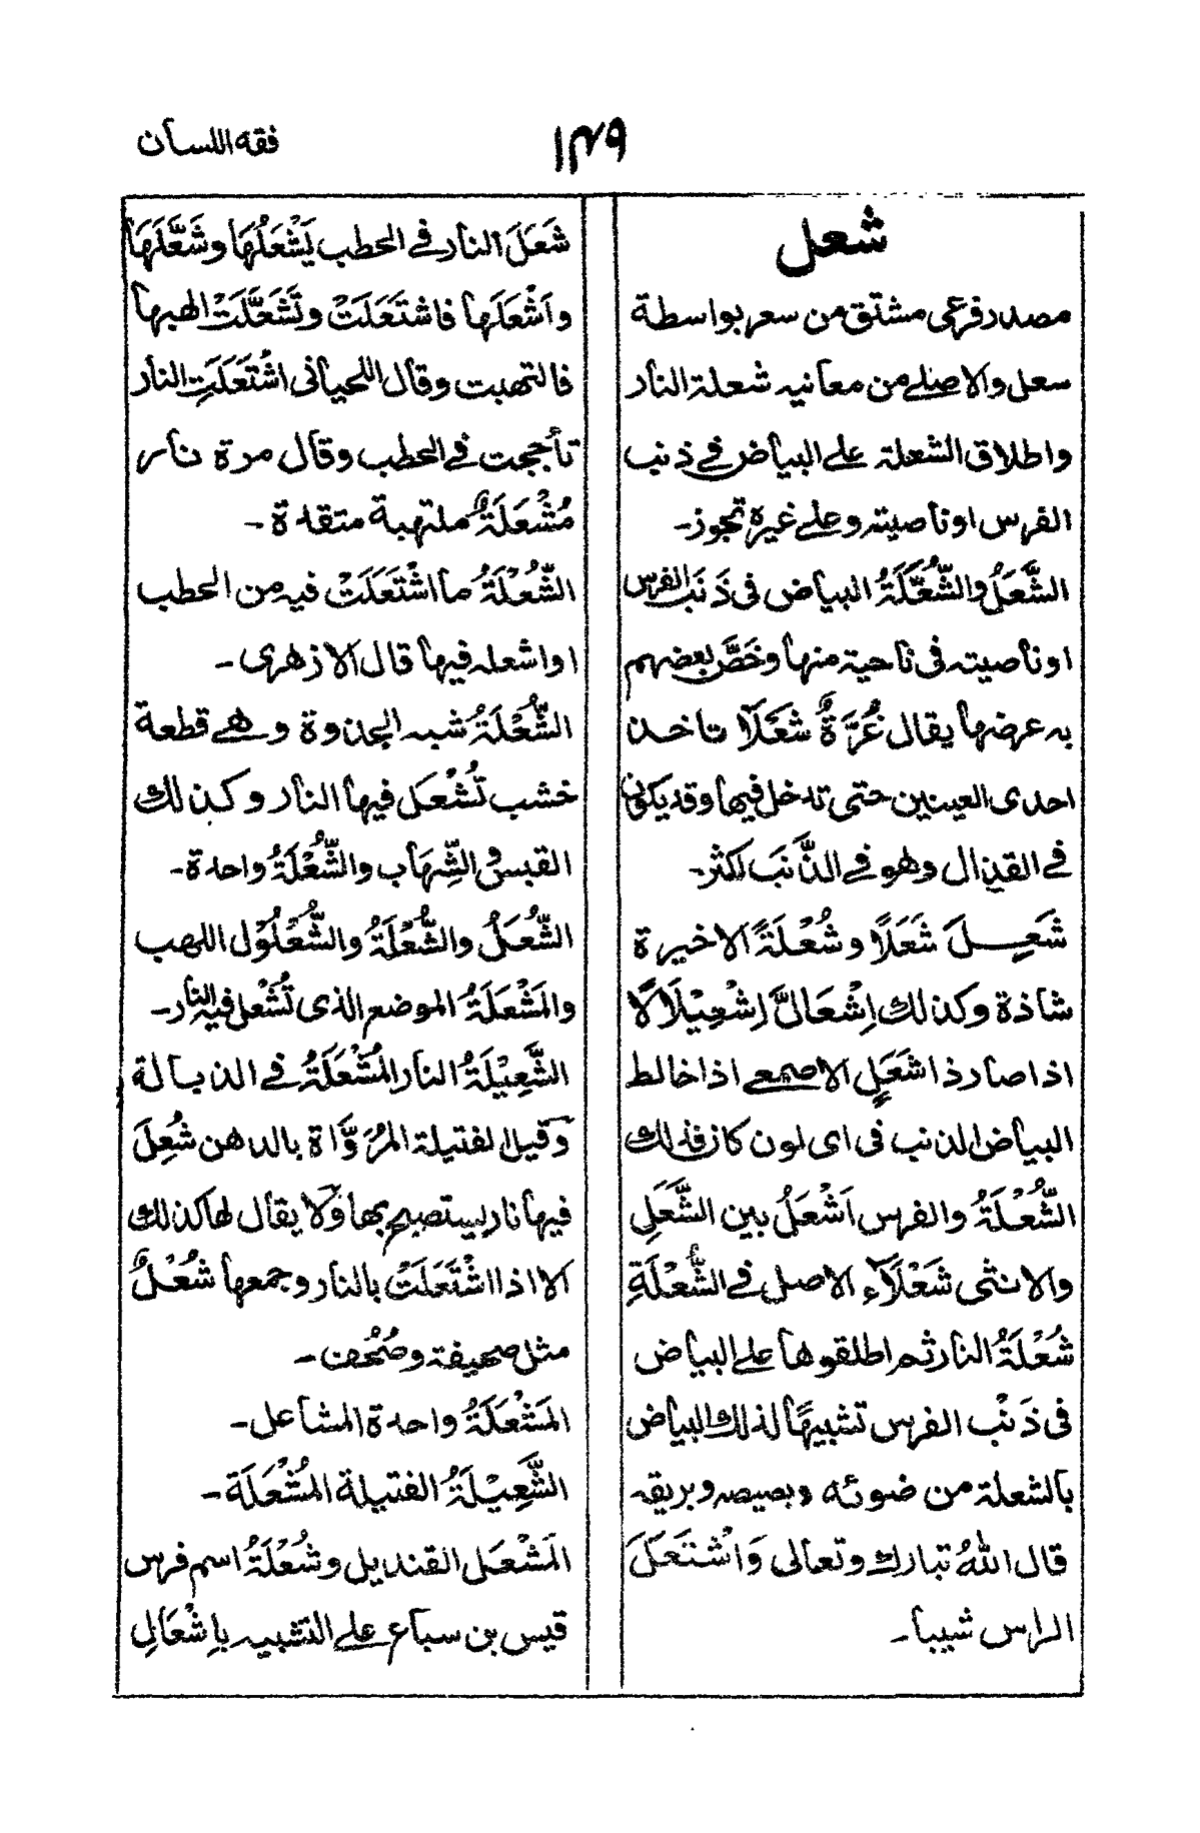 فقه اللسان
١٣٩
شعل
مصدر فرعی مشتق من سعر بواسطة
سعل والاصلے من معانیہ شعلة النار
واطلاق الشعلة علے البیاض فے ذنب
الفرس او ناصیتہ وعلے غیرہ تجوز۔
الشَّعَلُ والشُّعْلَةُ البیاض فی ذَنَب الفرس
او ناصیتہ فی ناحیة منہا وخَصَّ بعضہم
بہ عرضہا یقال غُرَّةٌ شَعْلَآ تاخذ
احدی العینین حتی تدخل فیہا وقد یکون
فے القذال وهو فے الذَّنَب اکثر۔
شَعِلَ شَعَلًا وشُعْلَةً الاخیرة
شاذة وکذلك اِشْعَالَّ اِشْعِیْلَالًا
اذا صار ذا شَعَلٍ الاصمعے اذا خالط
البیاض الذنب فی ای لون کان فذلك
الشُّعْلَةُ والفرس اَشْعَلُ بین الشَّعَلِ
والانثی شَعْلَآء الاصل فے الشُّعْلَةِ
شُعْلَةُ النار ثم اطلقوها علے البیاض
فی ذَنَب الفرس تشبیہًا لذلك البیاض
بالشعلة من ضوئه وبصیصہ وبریقہ
قال اللهُ تبارك وتعالی وَاشْتَعَلَ
الراس شیبا۔
شَعَلَ النار فے الحطب یَشْعَلُهَا وشَعَّلَهَا
واَشْعَلَها فاشتَعَلَتْ وتَشَعَّلَتْ الهبها
فالتهبت وقال اللحیانی اشْتَعَلَتِ النار
تأججت فے الحطب وقال مرة نار
مُشْعَلَةٌ ملتهبة متقدة۔
الشُّعْلَةُ ما اشْتَعَلَتْ فیہ من الحطب
او اشعلہ فیها قال الازهری۔
الشُّعْلَةُ شبہ الجذوة وهے قطعة
خشب تُشْعَل فیها النار وکذلك
القبس والشِّهَاب والشُّعْلَةُ واحدة۔
الشُّعَلُ والشُّعْلَةُ والشُّعْلُوْل اللهب
والمَشْعَلَةُ الموضع الذی تُشْعل فیہ النار۔
الشَّعِیْلَةُ النار المُشْعَلَةُ فے الذبالة
وقیل الفتیلة المُرَوَّاة بالدهن شُعِلَ
فیها نار یستصبح بها ولا یقال لها کذلك
الا اذا اشْتَعَلَتْ بالنار وجمعها شُعُلٌ
مثل صحیفة وصُحُف۔
المَشْعَلَةُ واحدة المشاعل۔
الشَّعِیْلَةُ الفتیلة المُشْعَلَة۔
المَشْعَل القندیل وشُعْلَةُ اسم فرس
قیس بن سباع علے التشبیہ باِشْعَالِ